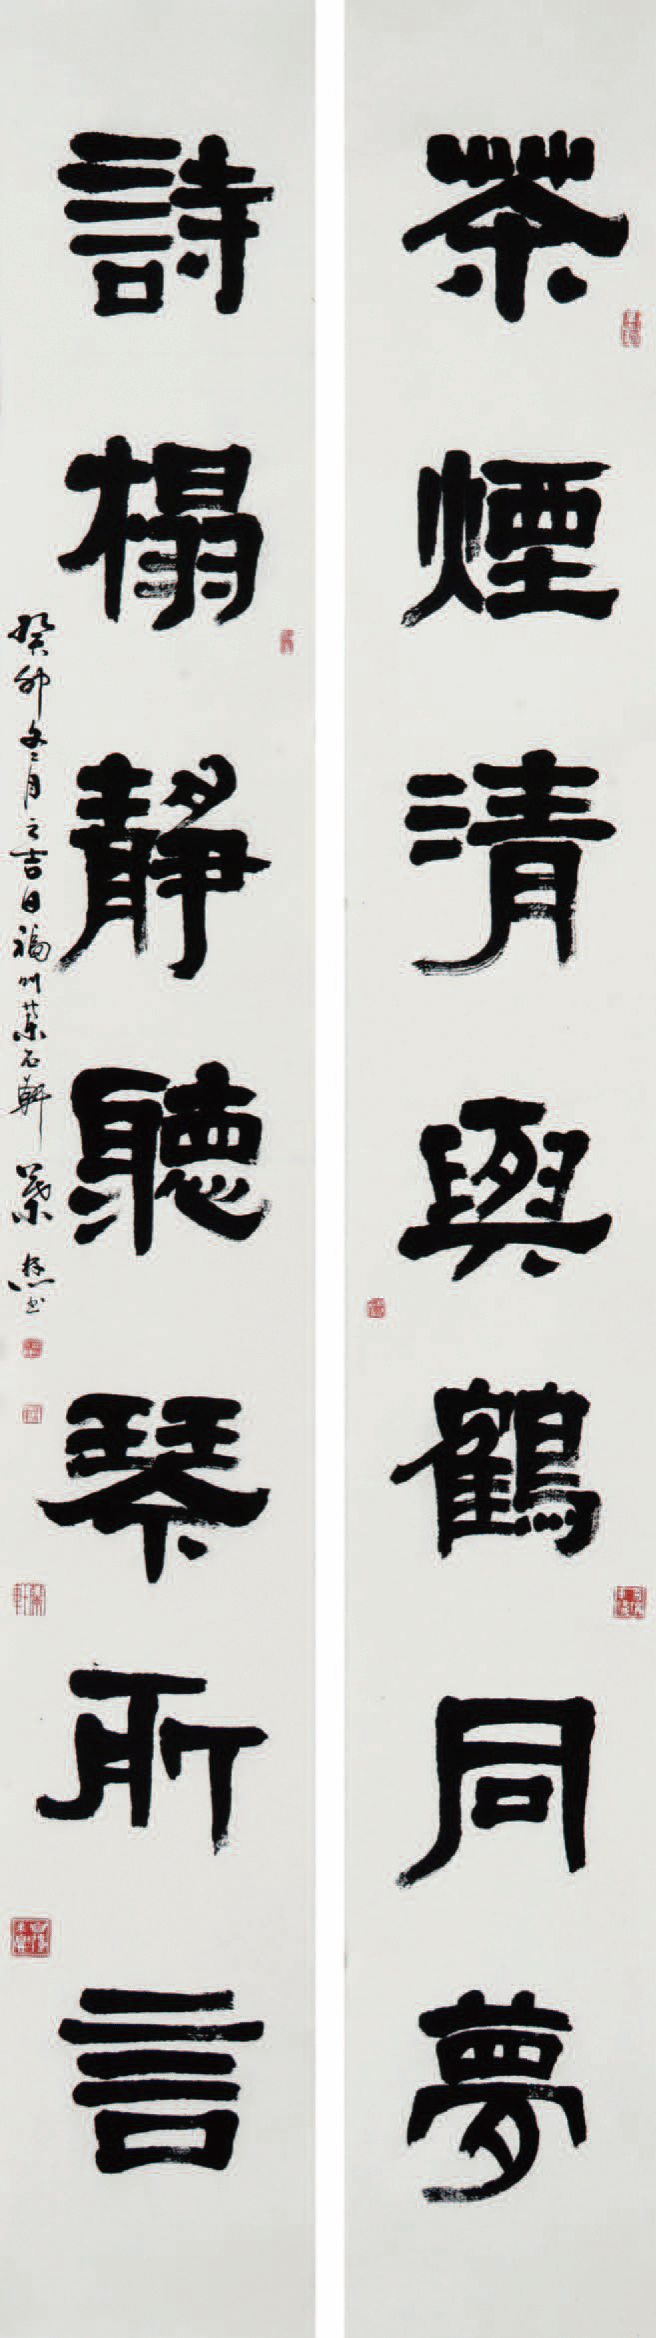 茶煙清與鶴同夢
詩榻靜聽琴所言
癸卯冬月之吉日福州